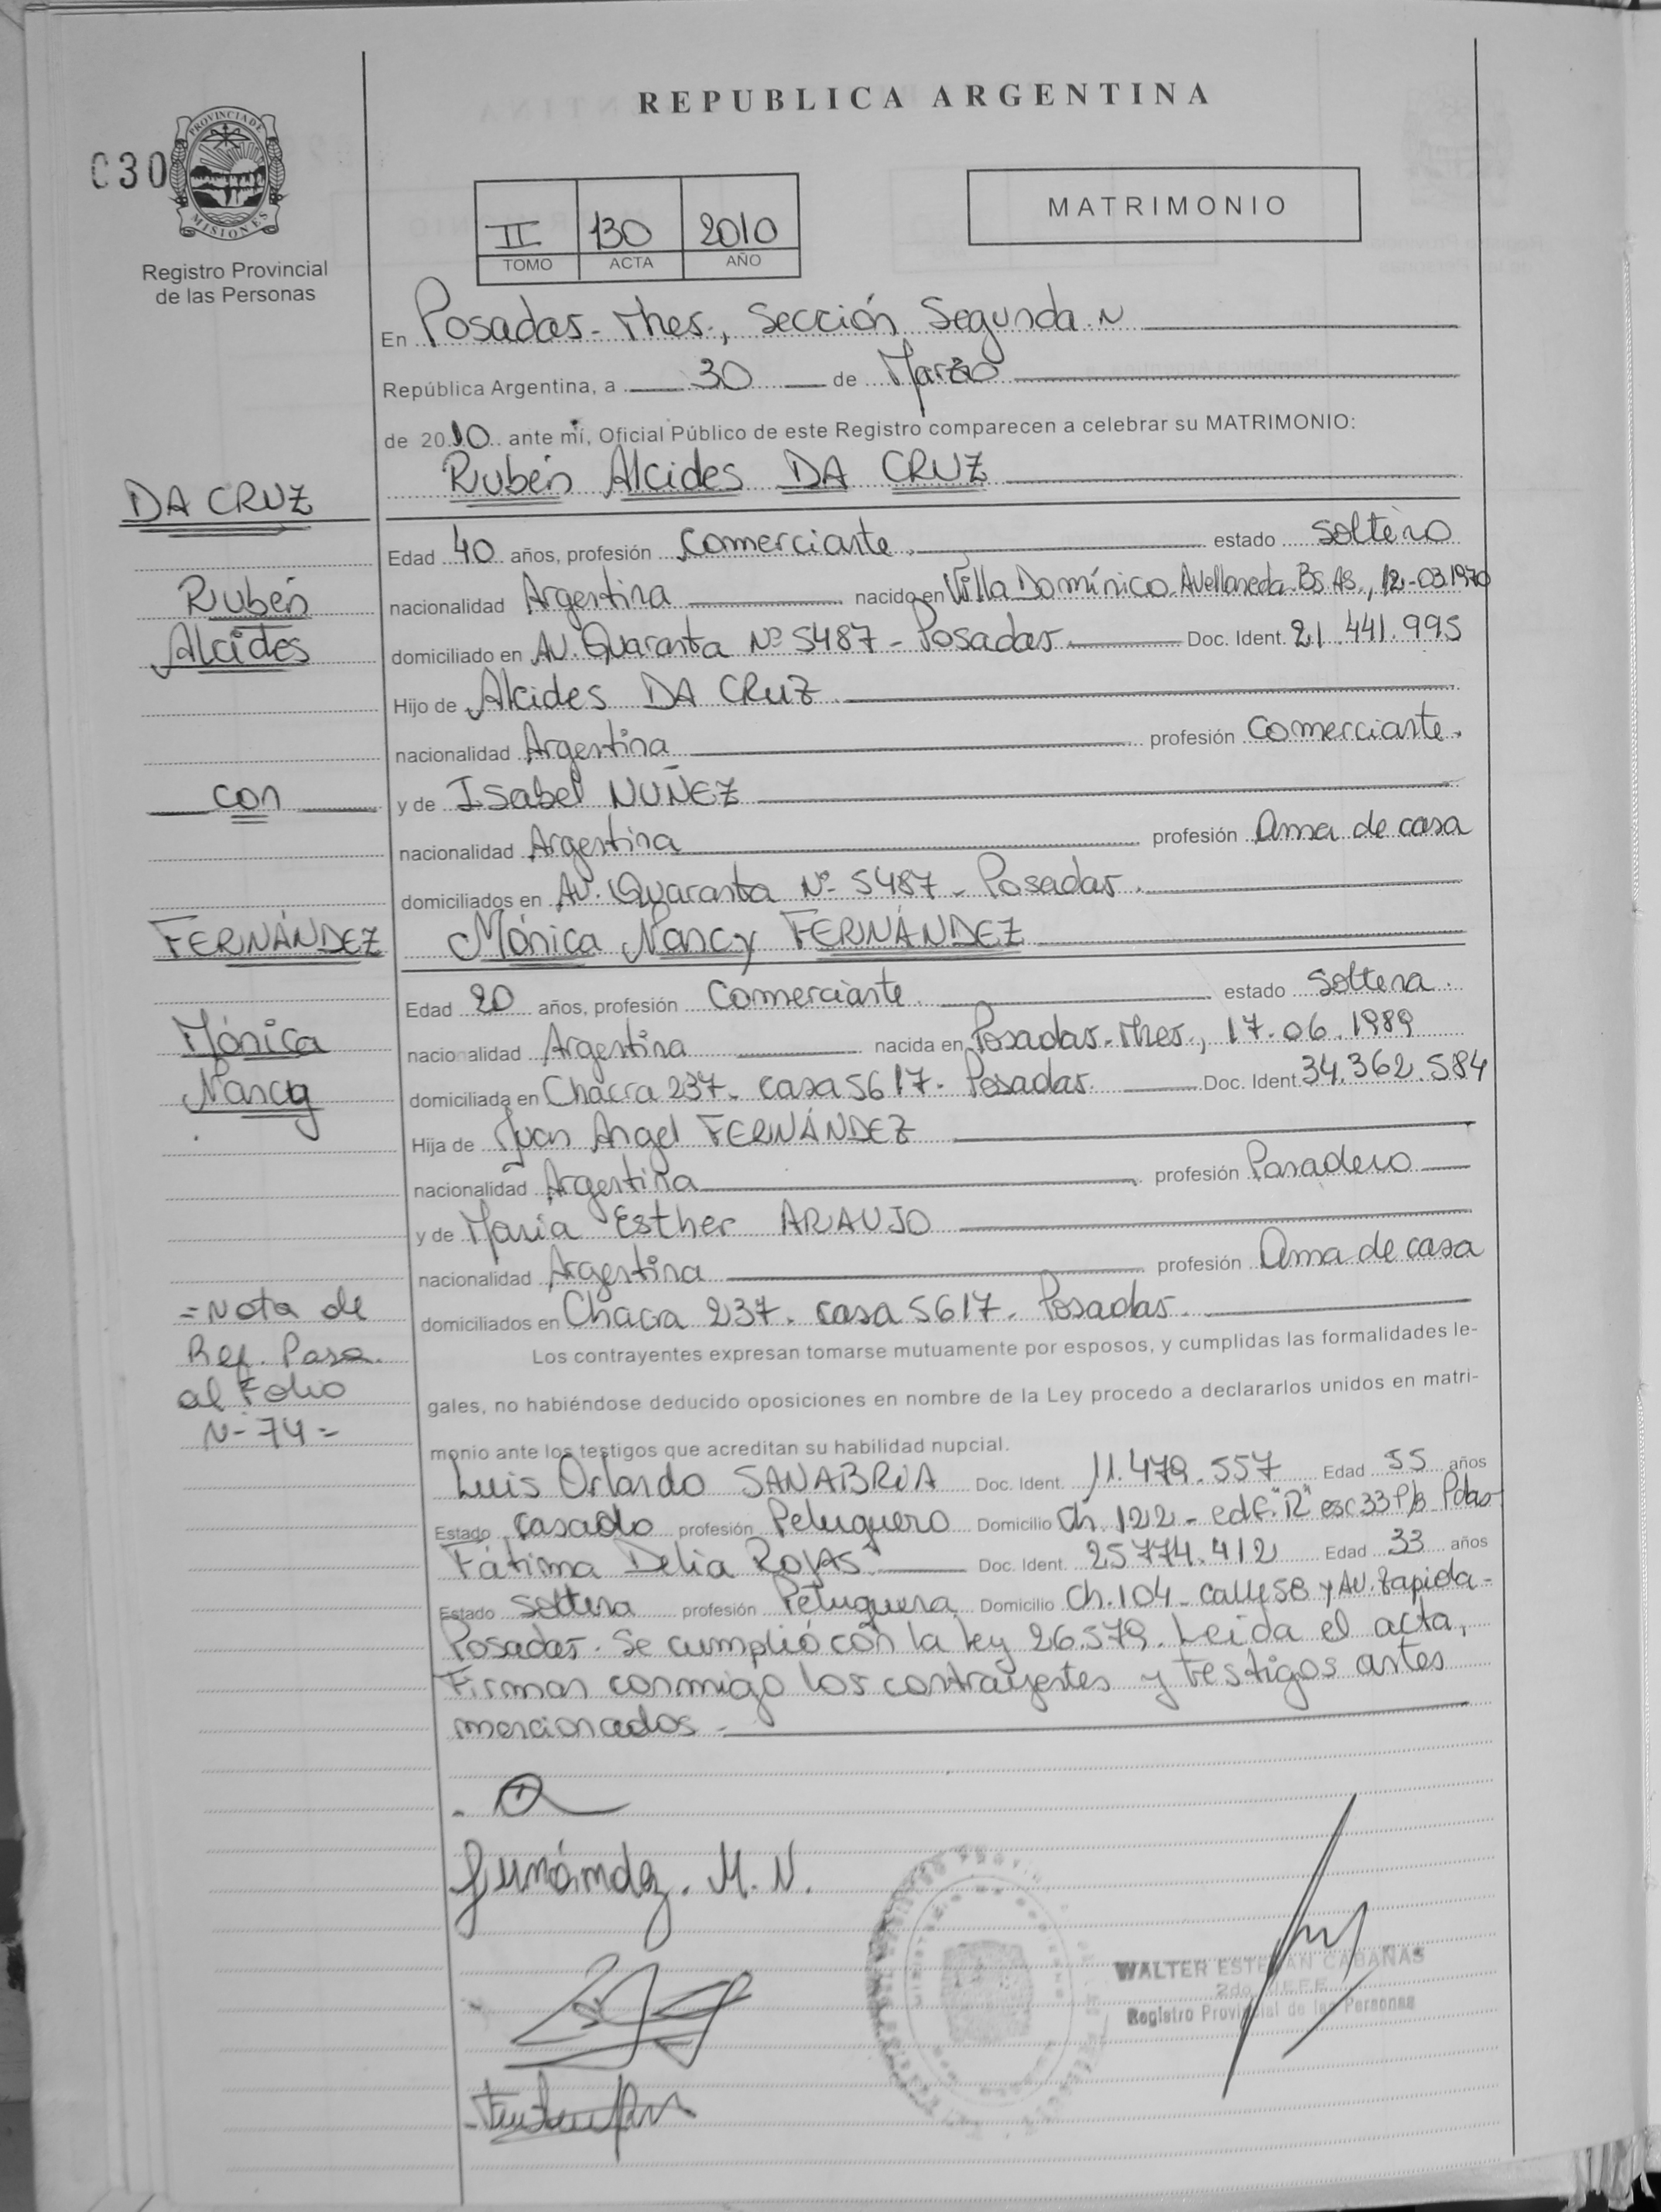 REPUBLICA ARGENTINA
030
PROVINCIA DE
MISIONES
Registro Provincial
de las Personas
II 130 2010
TOMO ACTA AÑO
MATRIMONIO
En Posadas-Mnes., Sección Segunda
República Argentina, a 30 de Marzo
de 2010 ante mí, Oficial Público de este Registro comparecen a celebrar su MATRIMONIO:
Rubén Alcides DA CRUZ
DA CRUZ
Edad 40 años, profesión Comerciante. estado Soltero
Rubén
nacionalidad Argentina nacido en Villa Domínico. Avellaneda. Bs. As., 12-03.1970
Alcides
domiciliado en Av. Quaranta Nº 5487 - Posadas. Doc. Ident. 21.441.995
Hijo de Alcides DA CRUZ.
nacionalidad Argentina profesión Comerciante.
con
y de Isabel NUÑEZ
nacionalidad Argentina profesión Ama de casa
domiciliados en Av. Quaranta Nº 5487 - Posadas.
FERNÁNDEZ
Mónica Nancy FERNÁNDEZ
Edad 20 años, profesión Comerciante. estado Soltera.
Mónica
nacionalidad Argentina nacida en Posadas-Mnes., 17.06.1989
Nancy
domiciliada en Chacra 237. casa 5617. Posadas. Doc. Ident. 34.362.584
Hija de Juan Angel FERNÁNDEZ
nacionalidad Argentina profesión Panadero
y de María Esther ARAUJO
nacionalidad Argentina profesión Ama de casa
domiciliados en Chacra 237. casa 5617. Posadas.
=Nota de
Ref. Pasa
al Folio
N- 74=
Los contrayentes expresan tomarse mutuamente por esposos, y cumplidas las formalidades le-
gales, no habiéndose deducido oposiciones en nombre de la Ley procedo a declararlos unidos en matri-
monio ante los testigos que acreditan su habilidad nupcial.
Luis Orlando SANABRIA Doc. Ident. 11.479.557 Edad 55 años
Estado Casado profesión Peluquero Domicilio Ch. 122 - edf. "R" esc 33 P/B Pdas-
Fátima Delia ROJAS. Doc. Ident. 25.774.412 Edad 33 años
Estado Soltera profesión Peluquera Domicilio Ch. 104 - Calle 58 y Av. Zapiola-
Posadas. Se cumplió con la ley 26.579. Leida el acta,
Firman conmigo los contrayentes y testigos antes
mencionados.
Fernández. M. N.
WALTER ESTEBAN CABAÑAS
2do. JEFE
Registro Provincial de las Personas